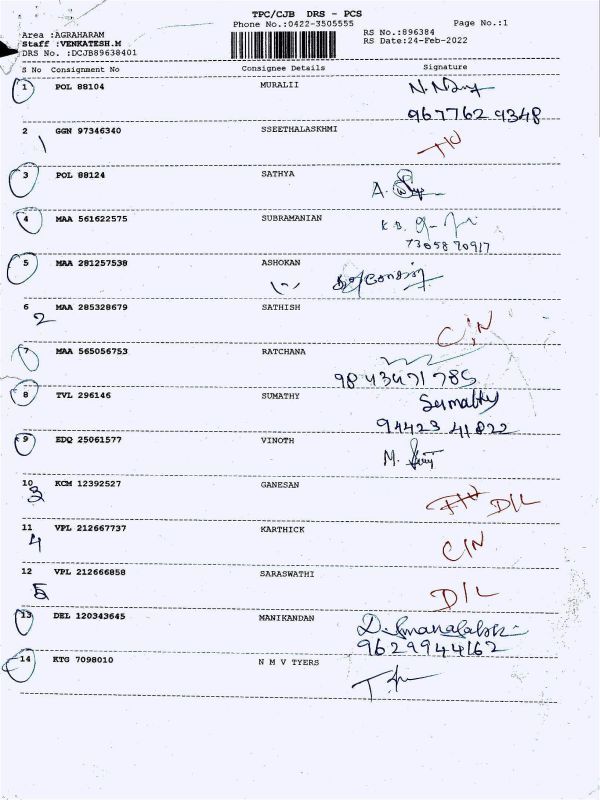 TPC/CJB DRS - PCS
Phone No.:0422-3505555
Page No.:1
Area :AGRAHARAM
RS No.:896384
Staff :VENKATESH.M
RS Date:24-Feb-2022
DRS No. :DCJB89638401
S No Consignment No Consignee Details Signature
1 POL 88104 MURALII
967762 9348
2 GGN 97346340 SSEETHALASKHMI
1
3 POL 88124 SATHYA
4 MAA 561622575 SUBRAMANIAN
7305870917
5 MAA 281257538 ASHOKAN
6 MAA 285328679 SATHISH
2 C/N
7 MAA 565056753 RATCHANA
9843471785
8 TVL 296146 SUMATHY Sumathy
94423 41822
9 EDQ 25061577 VINOTH
M.
10 KCM 12392527 GANESAN
3 D/L
11 VPL 212667737 KARTHICK
4 C/N
12 VPL 212666858 SARASWATHI
5 D/L
13 DEL 120343645 MANIKANDAN
9629944162
14 KTG 7098010 N M V TYERS